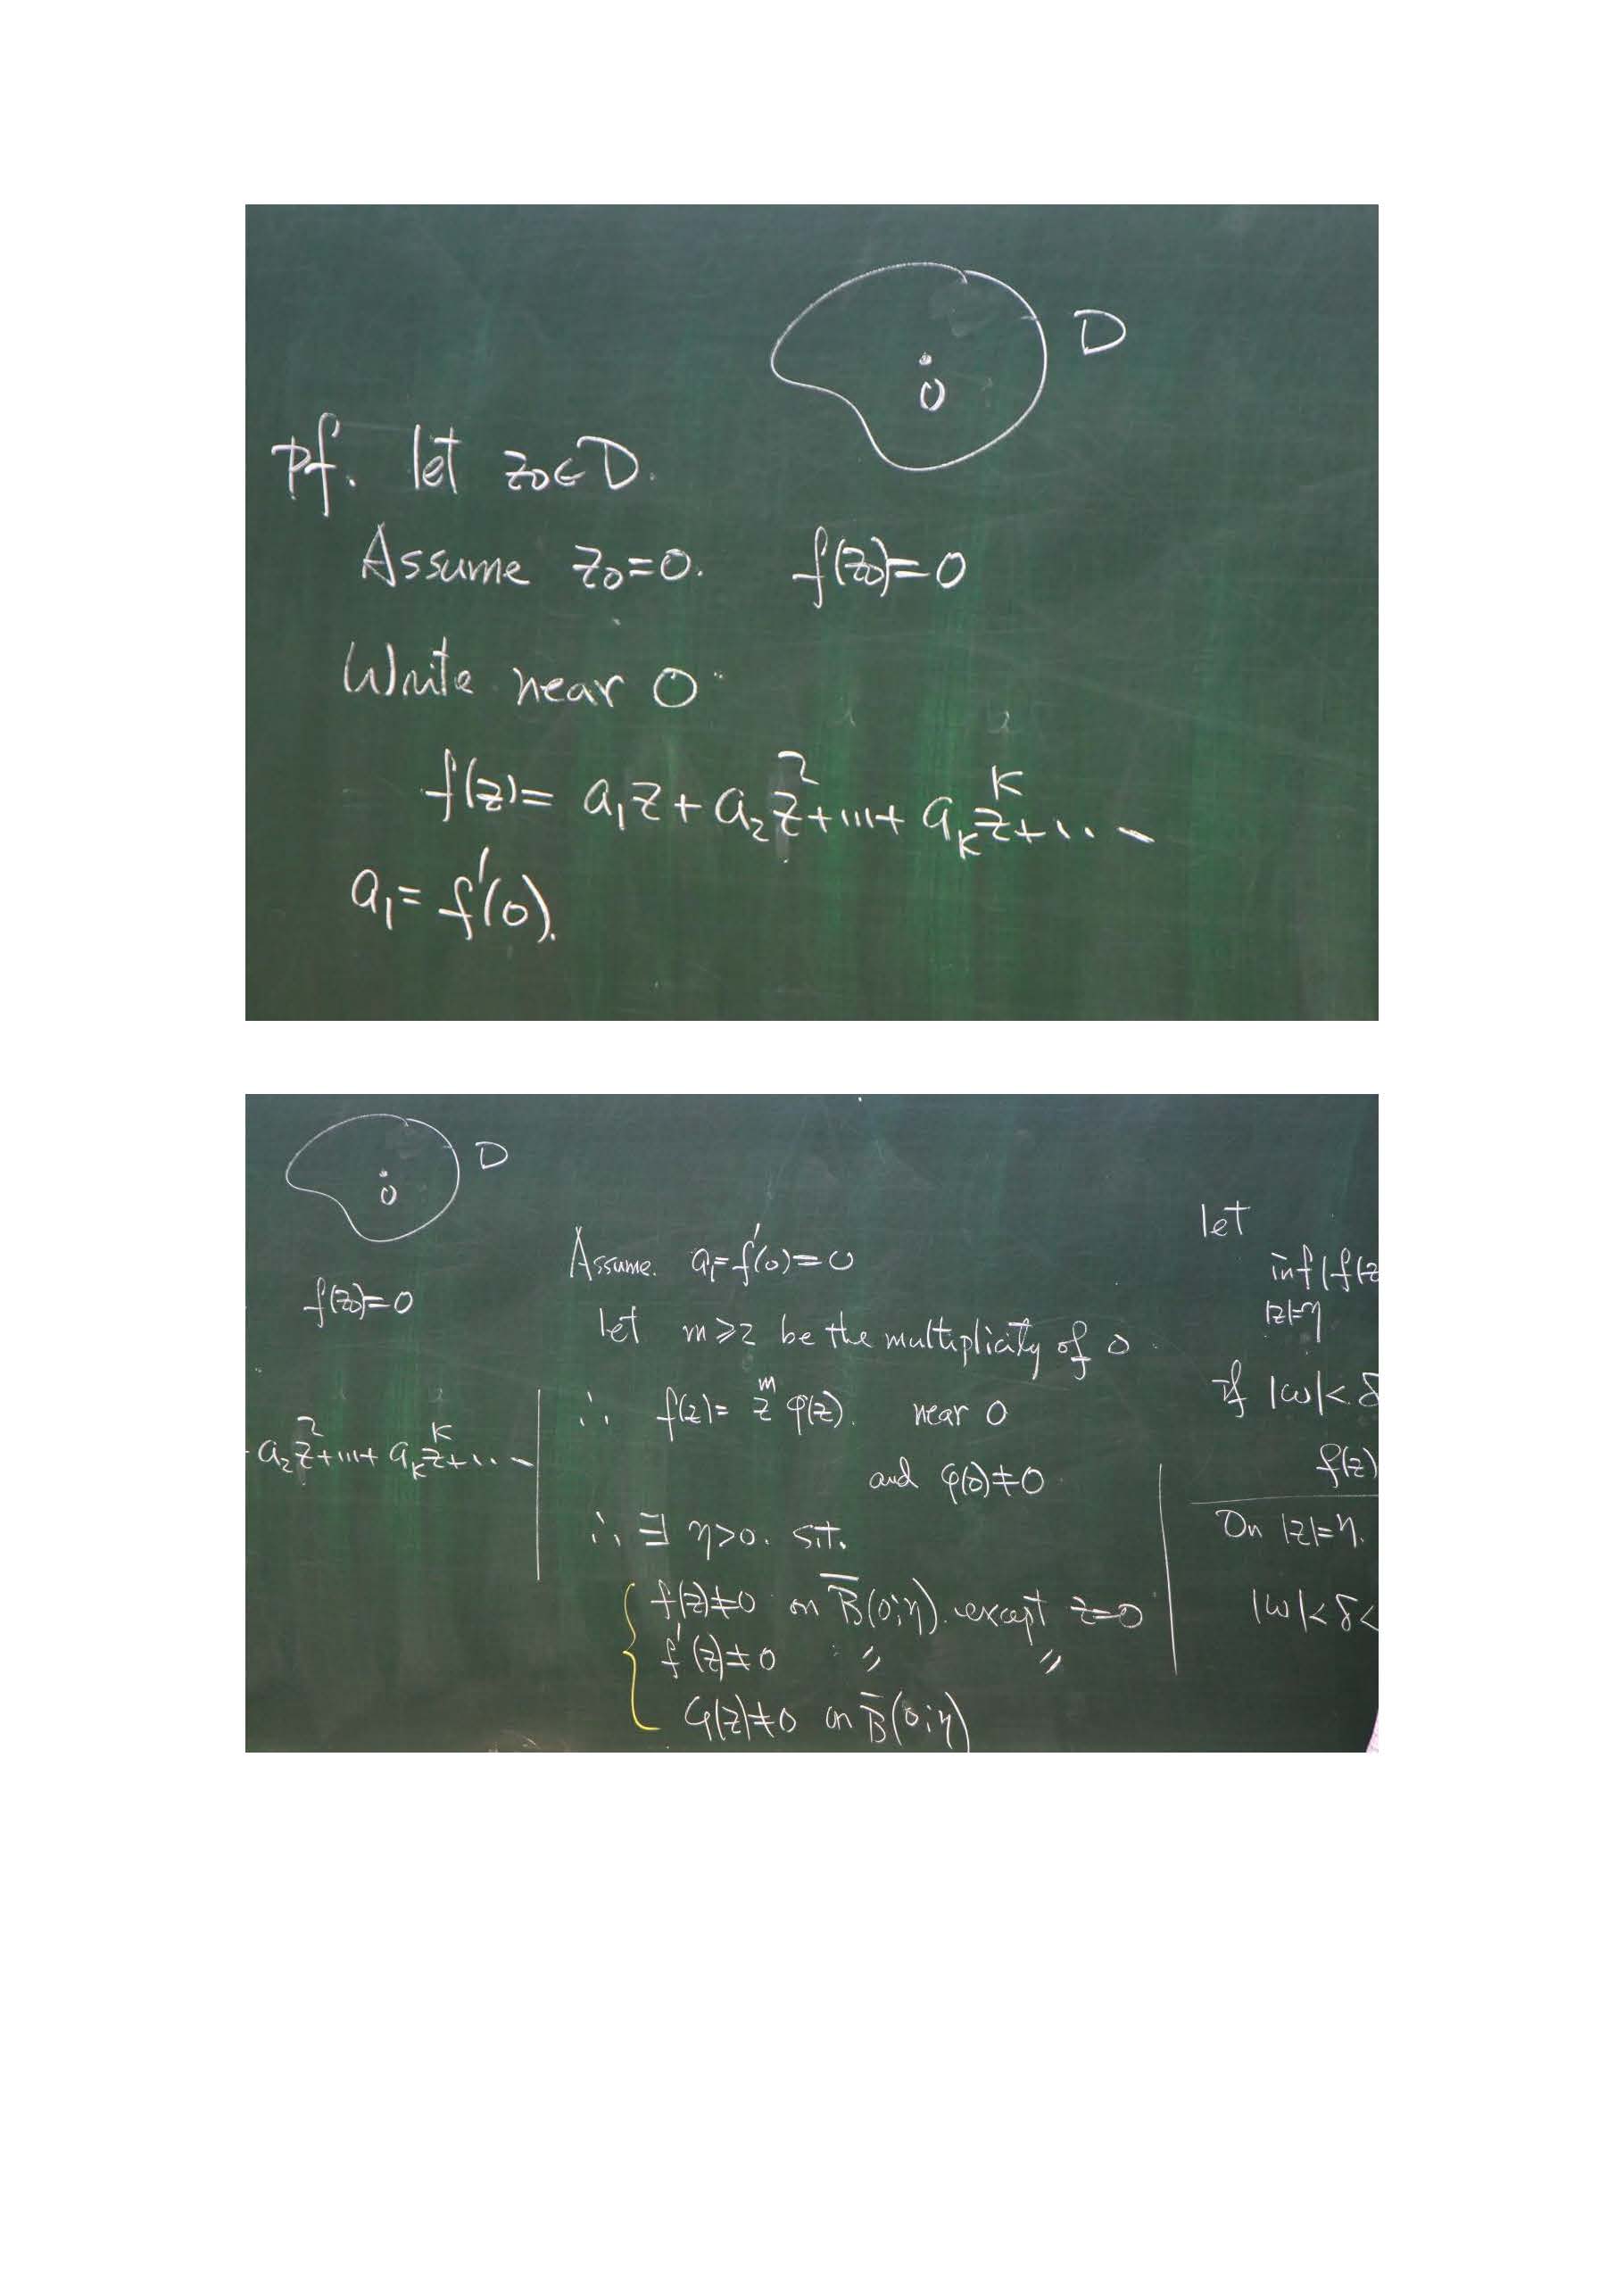 D
0
Pf. let z₀∈D.
Assume z₀=0. f(z₀)=0
Write near 0
f(z)= a₁z + a₂z²+...+ a_k z^k+...
a₁= f'(0).
D
0
f(z₀)=0
a₂z²+...+ a_k z^k+...
Assume. a₁=f'(0)=0
let m≥2 be the multiplicity of 0.
∴ f(z)= z^m φ(z). near 0
and φ(0)≠0
∴ ∃ η>0. s.t.
f(z)≠0 on B̄(0;η). except z=0
f'(z)≠0 〃 〃
φ(z)≠0 on B̄(0;η)
let
inf |f(z
|z|=η
If |w|<δ
f(z)
On |z|=η.
|w|<δ<